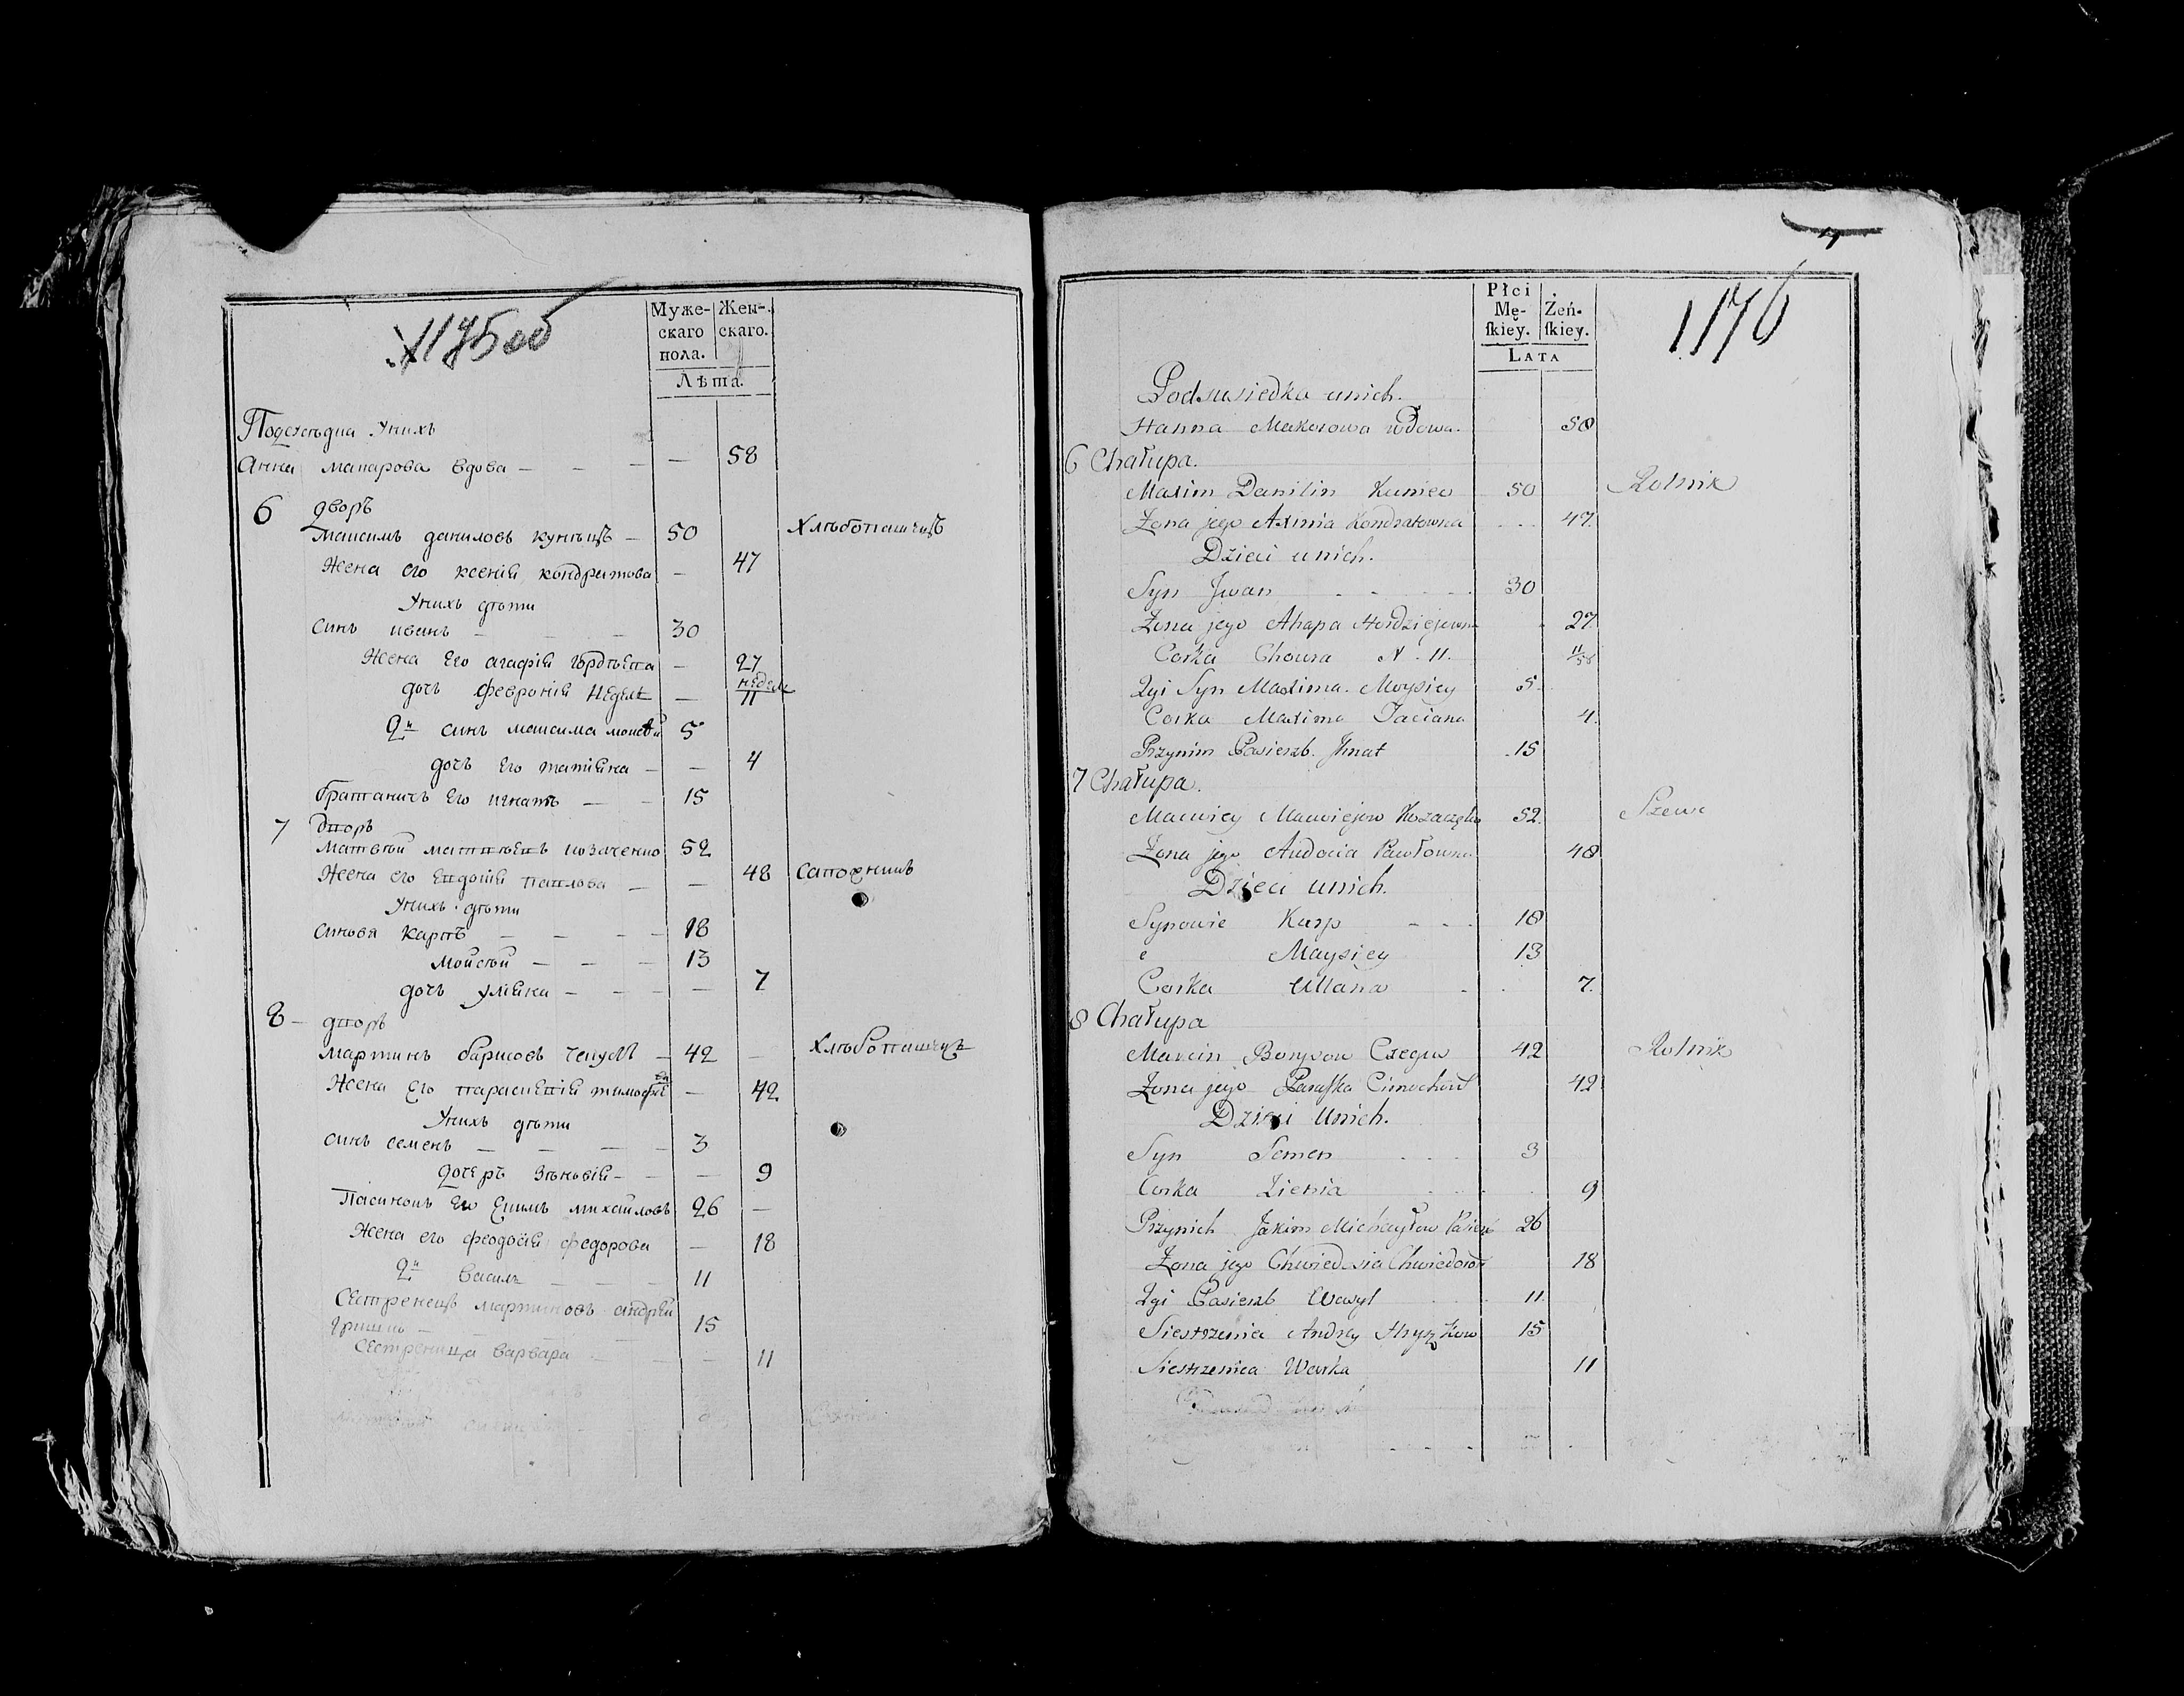 1175об
Муже-
скаго
пола.
Жен-
скаго.
Лѣта.
Подсусѣдка Унихъ
Анна макарова вдова — — — — 58
6 дворъ
Максимъ даниловъ кунѣцъ — 50 Хлѣбопашецъ
Жена его ксенія кондратова — 47
Унихъ дѣти
Синъ иванъ — — — 30
Жена Его агафія гордѣева — 27
дочъ февронія недель — недель 11
2й синъ максима мойсѣй 5
дочъ Его татіяна — — 4
братаничъ Его игнатъ — — 15
7 дворъ
Матвѣй матвѣевъ козаченко 52
Жена его Евдокія павлова — — 48 Сапожникъ
Унихъ дѣти
Синовя Карпъ — — — — 18
Мойсѣй — — — 13
дочъ уліяна — — — — 7
8 — дворъ
Мартинъ барисовъ — 42 — Хлѣбопашецъ
Жена Его параскевія тимофѣева — 42
Унихъ дѣти
синъ семенъ — — — — 3
дочеръ Зѣновія — — — 9
Пасинокъ Его Екимъ михайловъ 26 —
Жена его феодосія федорова — 18
2й Василъ — — — 11
Сестренецъ мартиновъ андрей
15
Сестреница варвара — — — 11
4
1176
Płci
Mę-
ſkiey.
Żeń-
ſkiey.
Lata
Podsusiedka unich.
Hanna Makorowa wdowa. 58
6 Chałupa.
Maxim Danilin Kuniec 50 Rolnik
Żona jego Axinia Kondratowna . . . 47
Dzieci unich.
Syn Jwan - - - - - 30
Żona jego Ahapa Hordziejewna 27
Corka Chowra N. 11. 11/58
2gi Syn Maxima. Moysiey 5
Corka Maxima Taciana 4
Przynim Pasierzb. Jhnat 15
7 Chałupa.
Maciviey Macwiejow Kozaczęko 52 Szewc
Żona jego Audocia Pawłowna 48
Dzieci unich.
Synowie Karp - - - 18
e Maysiey 13
Corka Ullana . . 7.
8 Chałupa
Marcin Borysow 42 Rolnik
Żona jego Paraſka Cimochow 42
Dzieci Unich.
Syn Semen . . . 3
Corka Zienia . . . 9
Przynich Jakim Michayłow Pasierb 26
Żona jego Chwiedosia Chwiedorow 18
2gi Pasierzb Wasyl . . . 11
Siestrzenia Andrey Hryszkow 15
Siestrzenica Warka 11